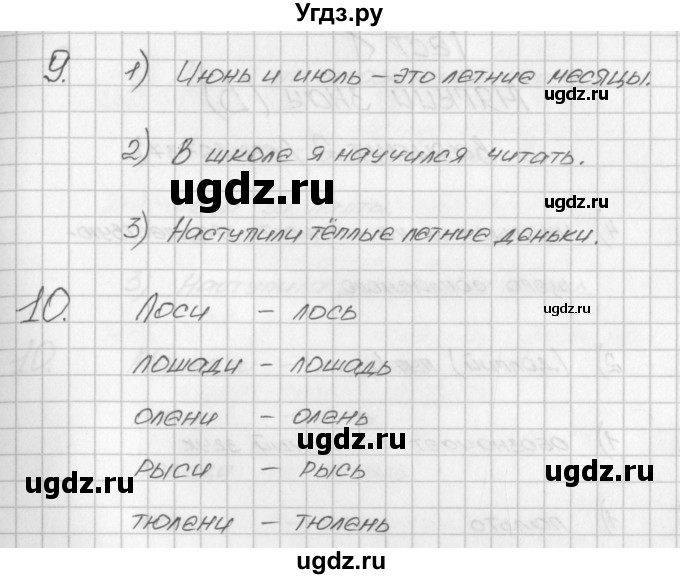 Угдз.ру
9. 1) Июнь и июль – это летние месяцы.
ugdz.ru
2) В школе я научился читать.
ugdz.ru ugdz.ru
3) Наступили тёплые летние деньки.
10. Лоси – лось
ugdz.ru
лошади – лошадь
олени – олень
ugdz.ru
рыси – рысь
ugdz.ru ugdz.ru
тюлени – тюлень
ugdz.ru